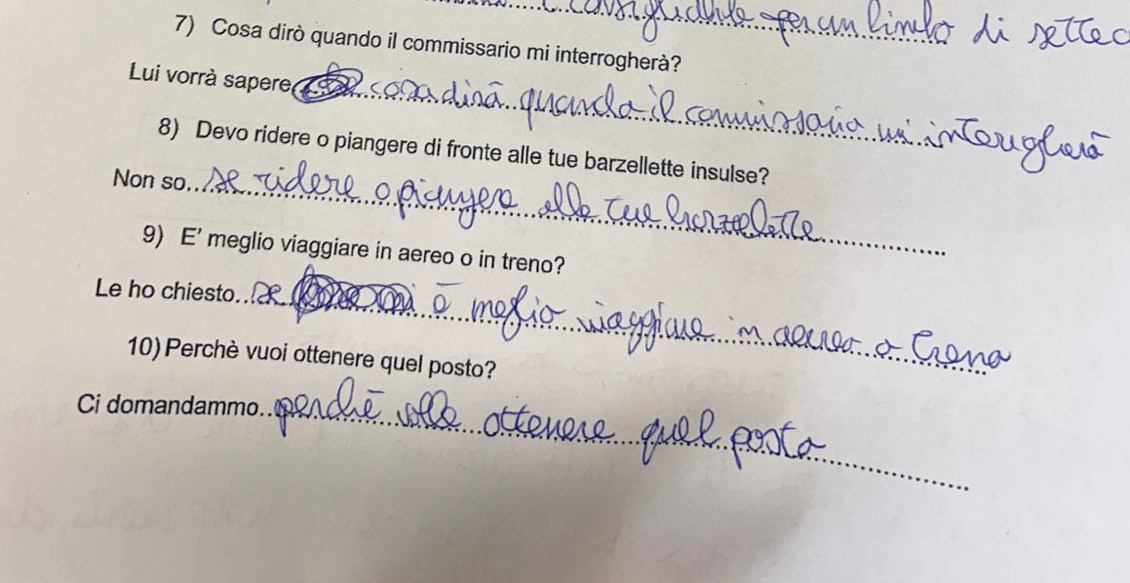 consigliabile per un bimbo di sette
7) Cosa dirò quando il commissario mi interrogherà?
Lui vorrà sapere cosa dirà quando il commissario mi interrogherà
8) Devo ridere o piangere di fronte alle tue barzellette insulse?
Non so... se ridere o piangere alle tue barzellette
9) E' meglio viaggiare in aereo o in treno?
Le ho chiesto... se è meglio viaggiare in aereo o treno
10) Perchè vuoi ottenere quel posto?
Ci domandammo... perché volle ottenere quel posto